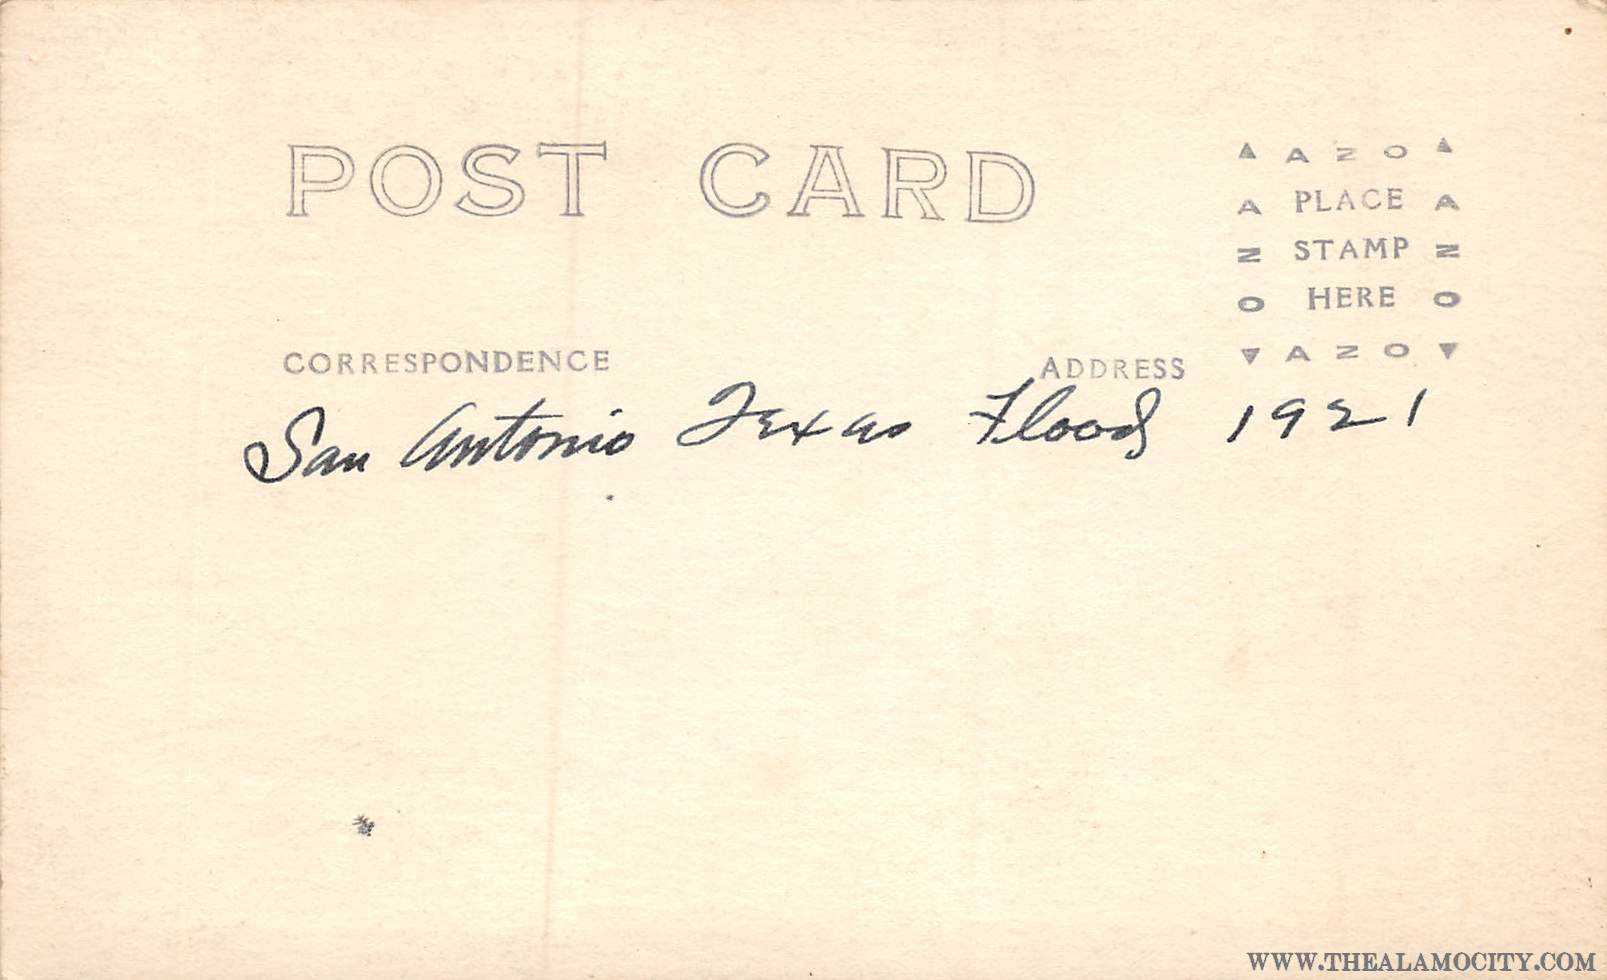 POST CARD
▲ AZO ▲
A PLACE A
Z STAMP Z
O HERE O
▼ AZO ▼
CORRESPONDENCE
ADDRESS
San Antonio Texas Flood 1921
WWW.THEALAMOCITY.COM